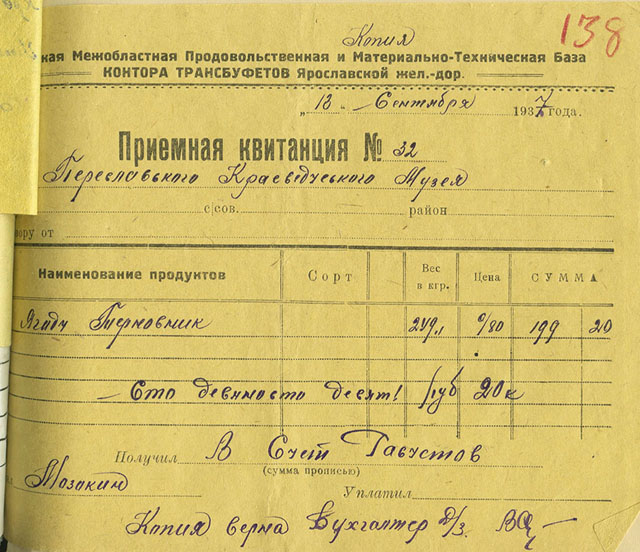 Копия
138
кая Межобластная Продовольственная и Материально-Техническая База
КОНТОРА ТРАНСБУФЕТОВ Ярославской жел.-дор.
„13„ Сентября 1937 года.
Приемная квитанция № 32
Переславського Краеведческого Музея
с|сов. район
вору от
Наименование продуктов Сорт Вес в кгр. Цена СУММА
Ягоды Терновник 249 0/80 199 20
— Сто девяносто девят! руб 20к
Получил В Счет
(сумма прописью)
Мозакин Уплатил
Копия верна Бухгалтер